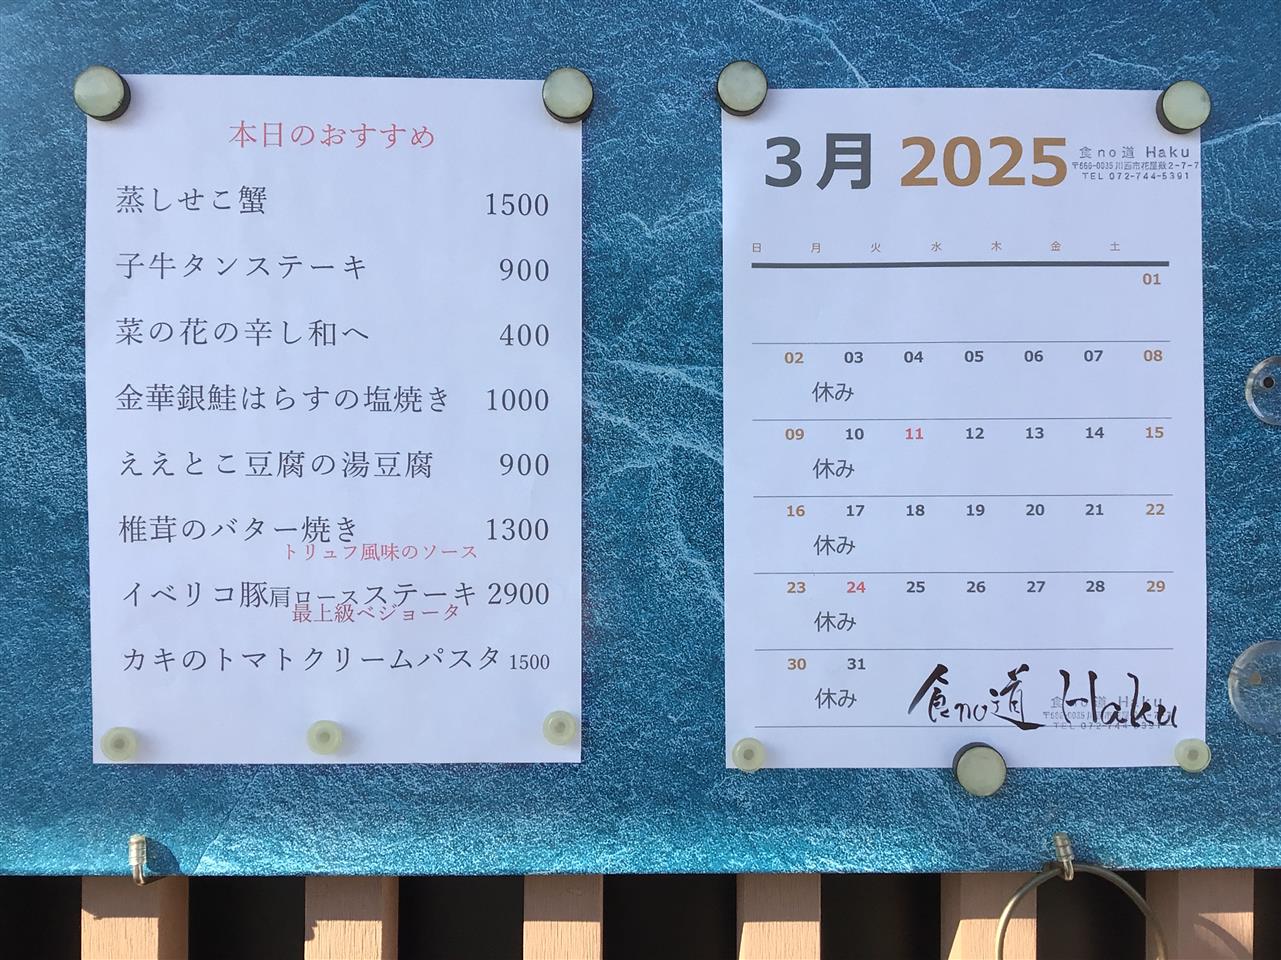 本日のおすすめ
蒸しせこ蟹 1500
子牛タンステーキ 900
菜の花の辛し和へ 400
金華銀鮭はらすの塩焼き 1000
ええとこ豆腐の湯豆腐 900
椎茸のバター焼き 1300
トリュフ風味のソース
イベリコ豚肩ロースステーキ 2900
最上級ベジョータ
カキのトマトクリームパスタ 1500
3月 2025
食no道 Haku
〒666-0035 川西市花屋敷2-7-7
TEL 072-744-5391
日 月 火 水 木 金 土
01
02 03 04 05 06 07 08
休み
09 10 11 12 13 14 15
休み
16 17 18 19 20 21 22
休み
23 24 25 26 27 28 29
休み
30 31
休み
食no道 Haku
食no道 Haku
〒666-0035 川西市花屋敷2-7-7
TEL 072-744-5391